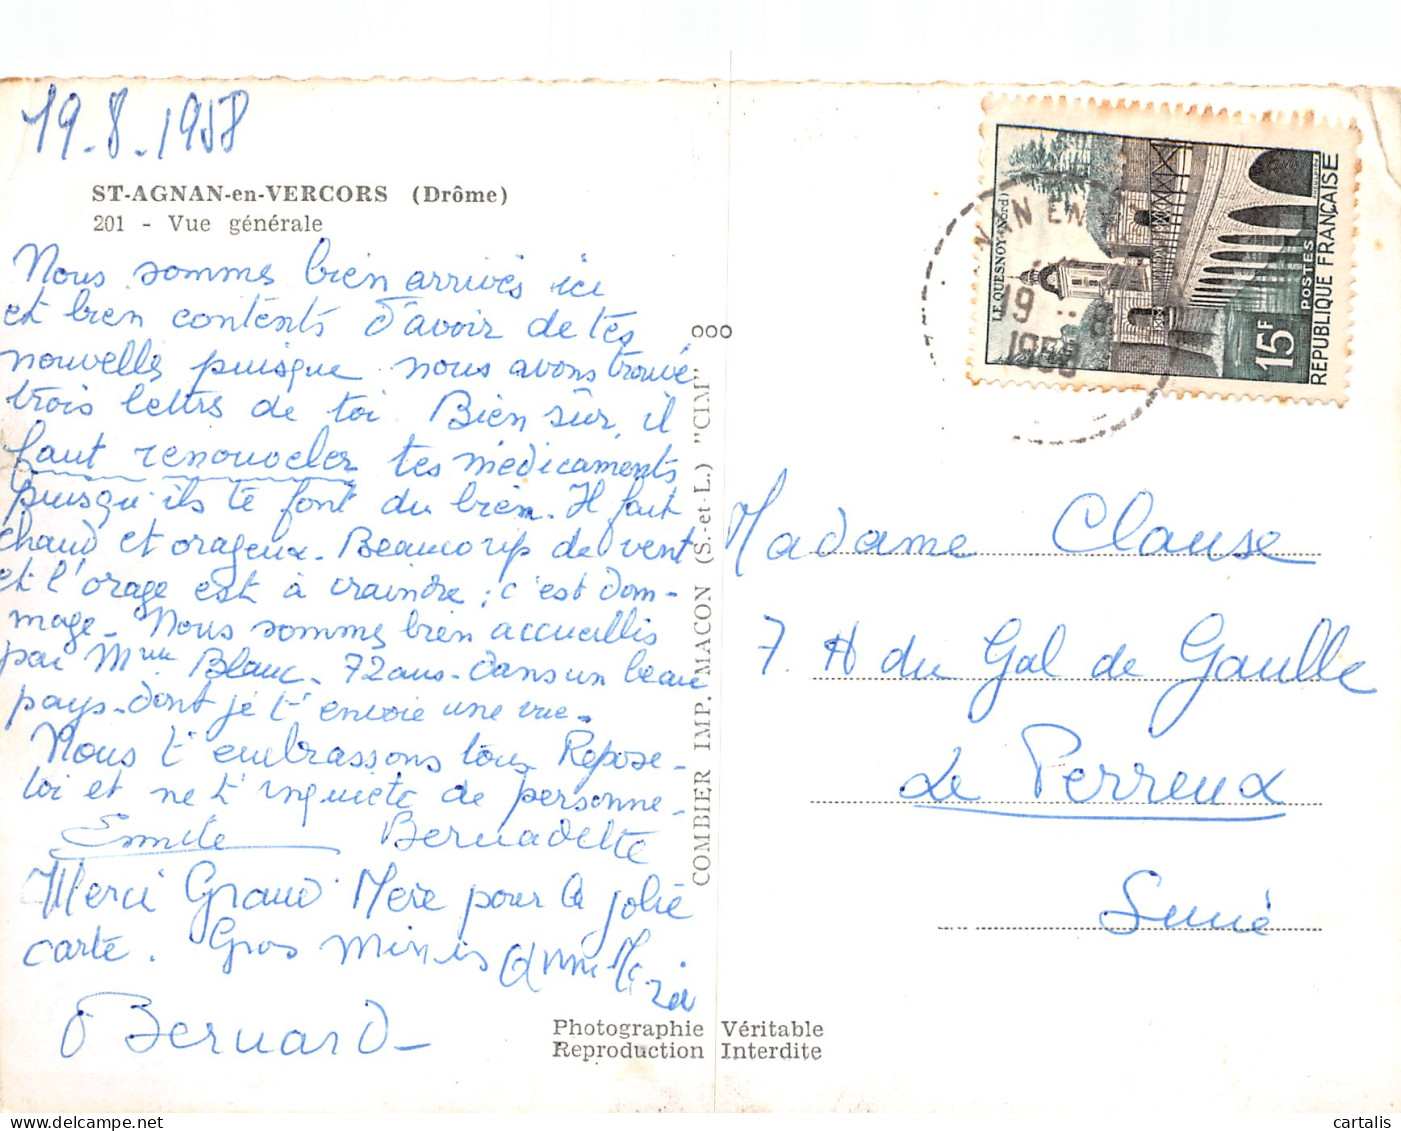 19.8.1958
ST-AGNAN-en-VERCORS (Drôme)
201 - Vue générale
Nous sommes bien arrivés ici
et bien contents d'avoir de tes
nouvelles puisque nous avons trouvé
trois lettres de toi. Bien sûr, il
faut renouveler tes médicaments
puisqu'ils te font du bien. Il fait
chaud et orageux. Beaucoup de vent
et l'orage est à craindre ; c'est dom-
mage. Nous sommes bien accueillis
par Mme Blanc. 72 ans. dans un beau
pays. dont je t'envoie une vue.
Nous t'embrassons tous Repose-
toi et ne t'inquiète de personne.
Emile Bernadette
Merci Grand Mère pour la jolie
carte. Gros Mimis
Bernard
COMBIER IMP. MACON (S.-et-L.) "CIM"
Photographie Véritable
Reproduction Interdite
NAN EN
19 8
1958
LE QUESNOY (Nord)
15F
POSTES
REPUBLIQUE FRANÇAISE
Madame Clause
7. du Gal de Gaulle
Le Perreux
Seine
cartalis